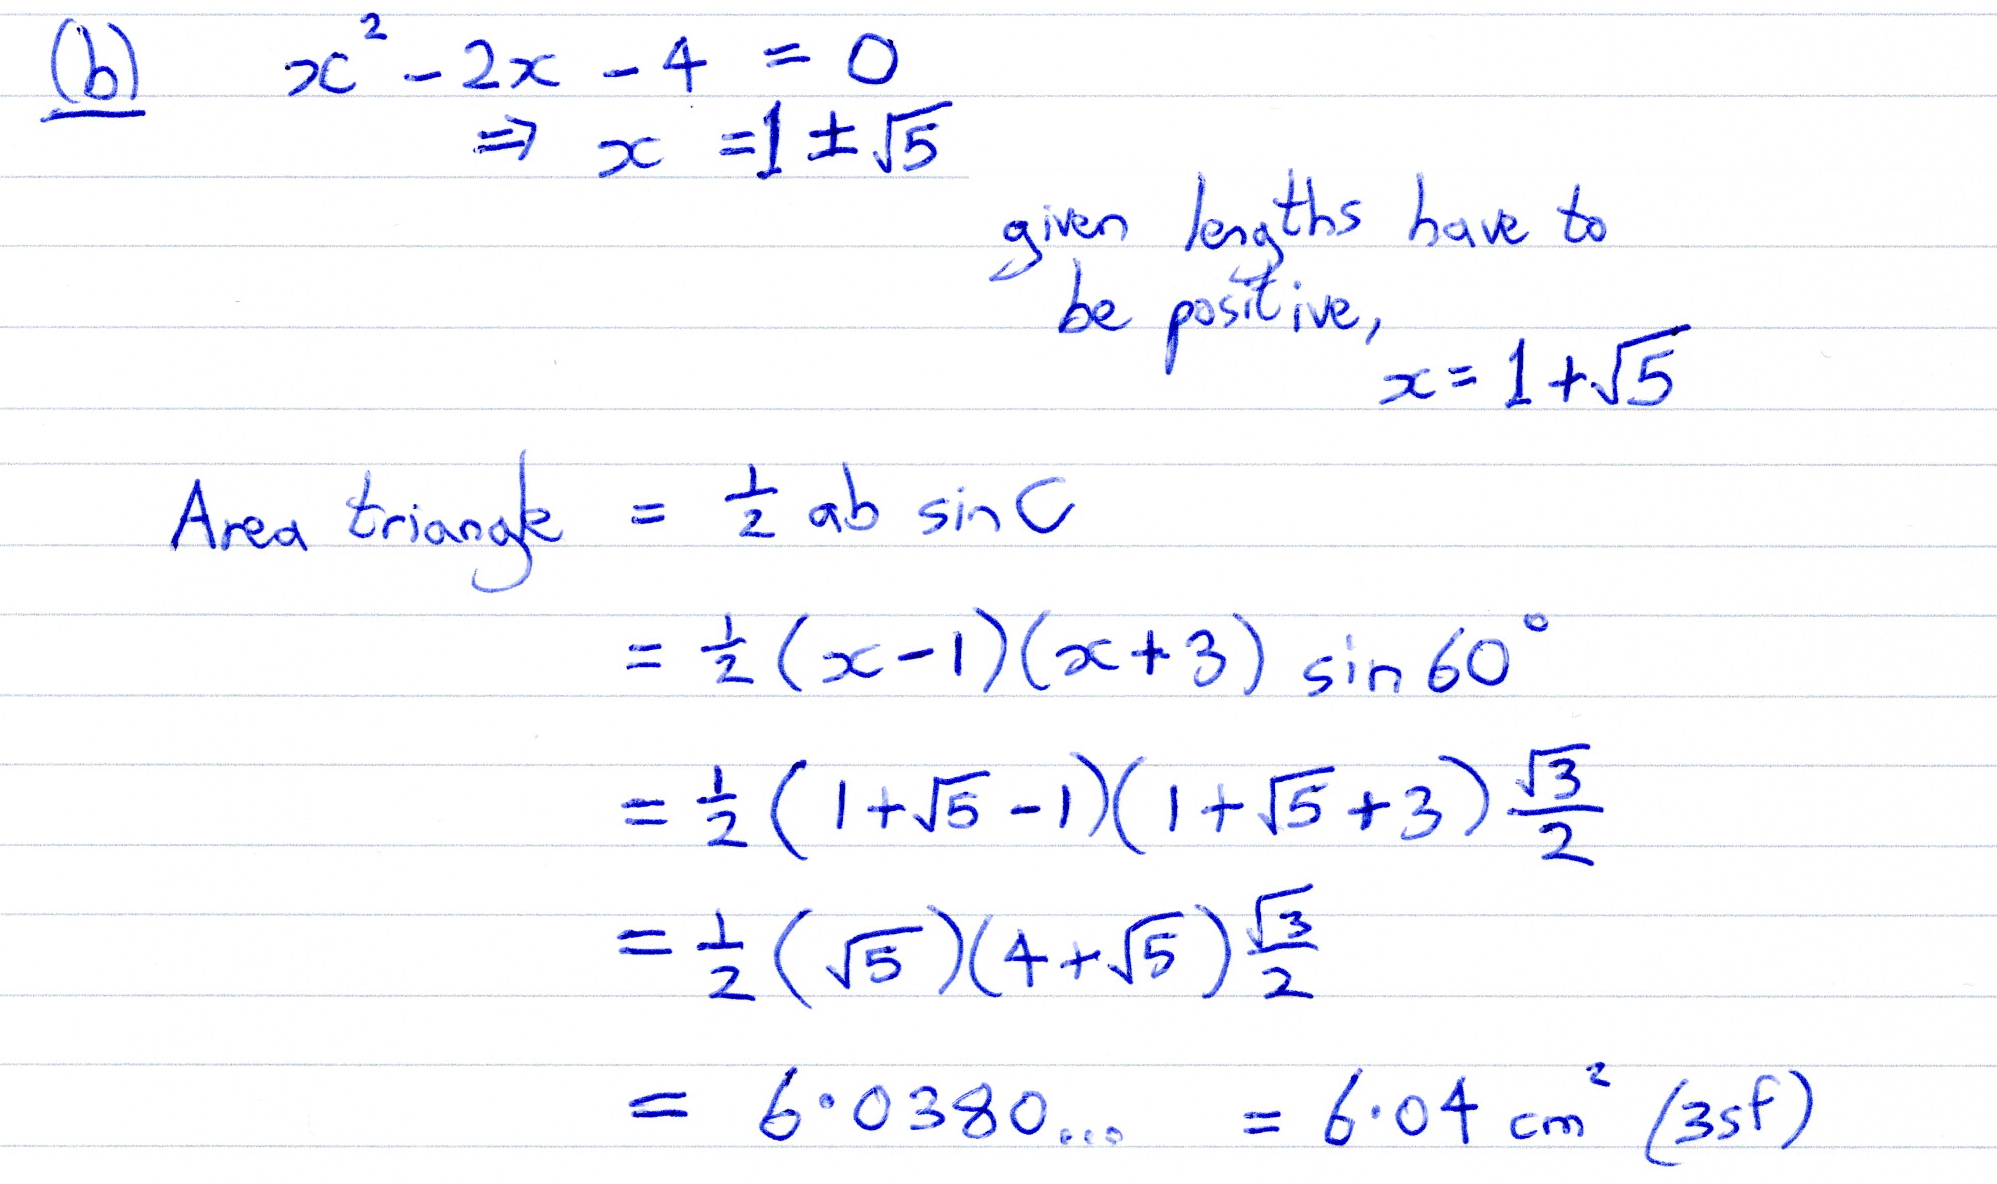 (b) x² - 2x - 4 = 0
⇒ x = 1 ± √5
given lengths have to
be positive,
x = 1 + √5
Area triangle = ½ ab sin C
= ½ (x - 1)(x + 3) sin 60°
= ½ (1 + √5 - 1)(1 + √5 + 3) √3/2
= ½ (√5)(4 + √5) √3/2
= 6·0380... = 6·04 cm² (3sf)